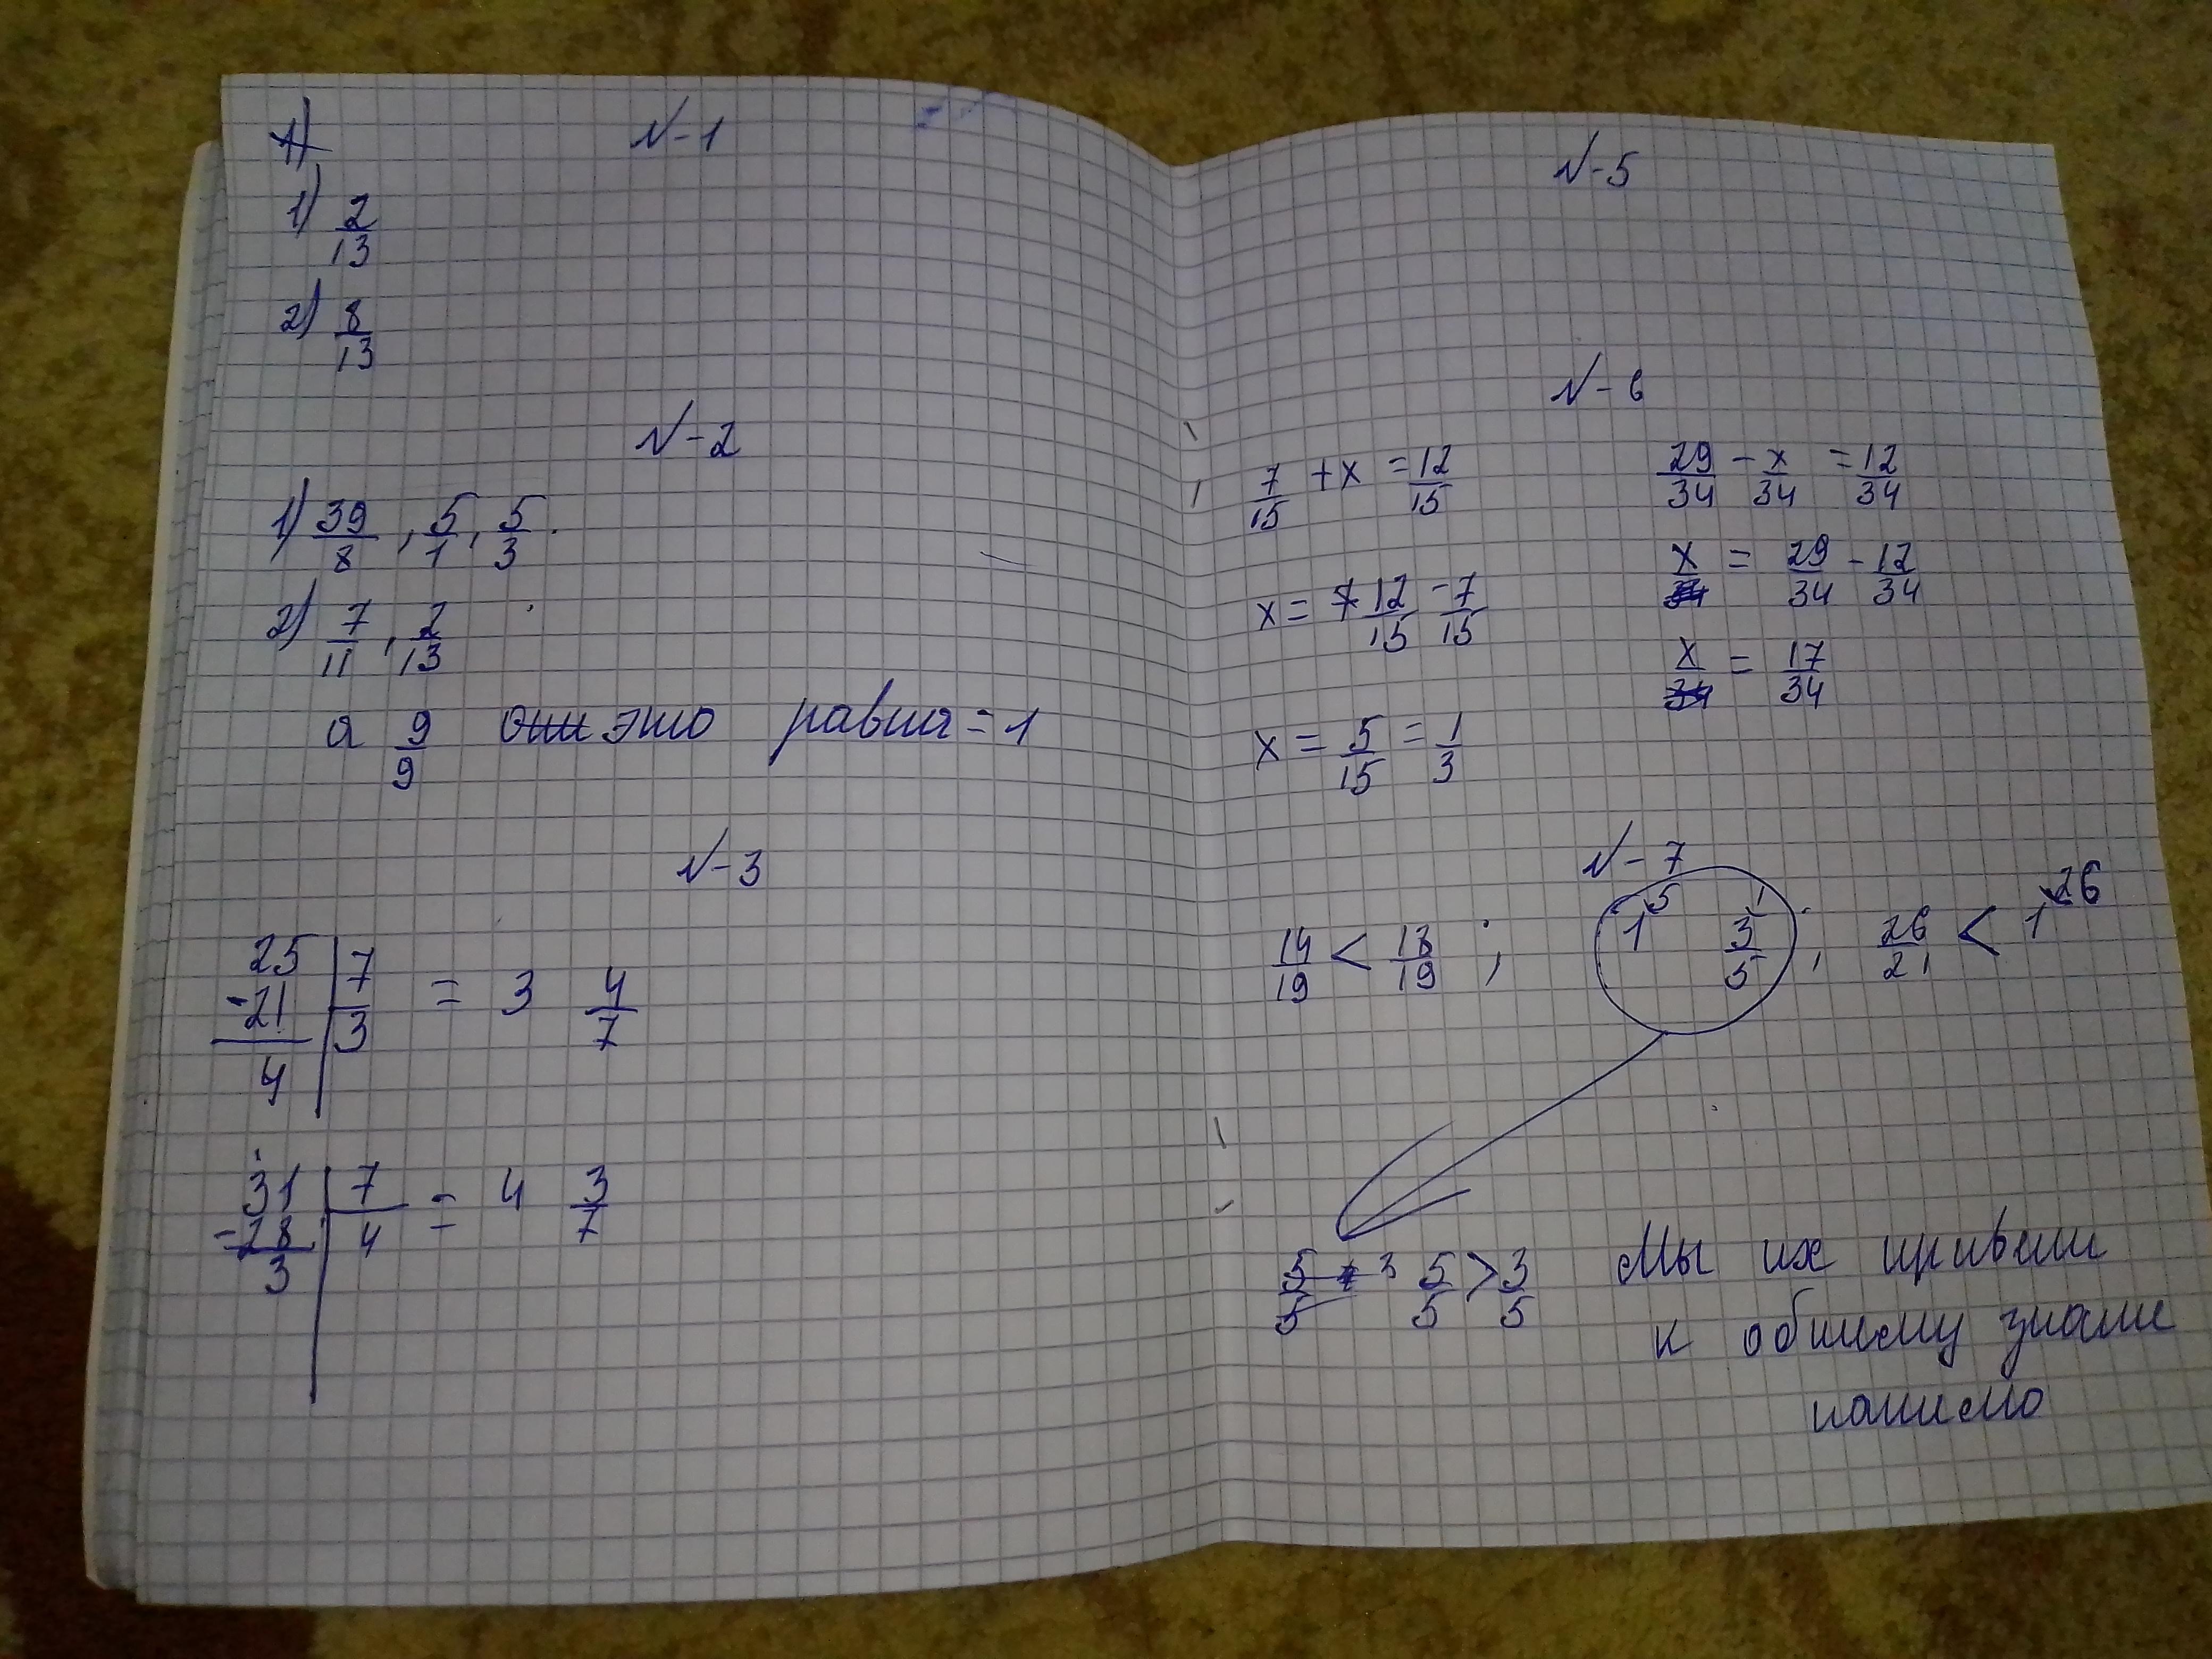 N-1
1) 2/13
2) 8/13
N-2
1) 39/8, 5/1, 5/3.
2) 7/11, 2/13
а 9/9 это равна = 1
N-3
25 | 7 = 3 4/7
-21 | 3
4
31 | 7 = 4 3/7
-28 | 4
3
N-5
N-6
7/15 + x = 12/15
x = 12/15 - 7/15
x = 5/15 = 1/3
29/34 - x/34 = 12/34
x = 29/34 - 12/34
x = 17/34
N-7
14/19 < 18/19 ; 1 5 3/5 1 ; 26/21 < 1 26
5/5 > 3/5 Мы их привели
к общему знаме